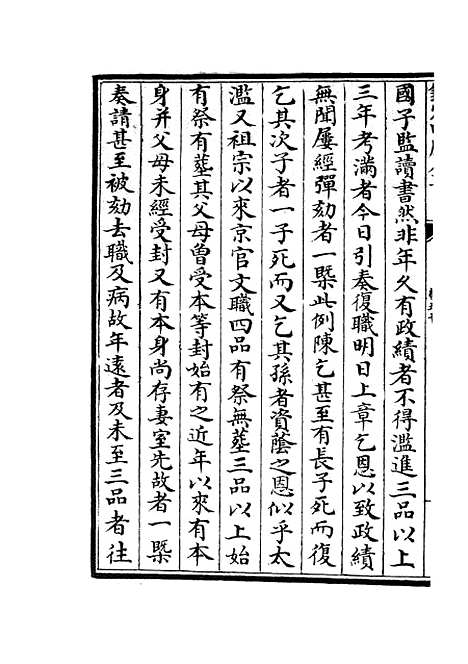 國子監讀書然非年久有政績者不得濫進三品以上
三年考滿者今日引奏復職明日上章乞恩以致政績
無聞屢經彈劾者一槩此例陳乞甚至有長子死而復
乞其次子者一子死而又乞其孫者資蔭之恩似乎太
濫又祖宗以來京官文職四品有祭無塟三品以上始
有祭有塟其父母曾受本等封始有之近年以來有本
身并父母未經受封又有本身尚存妻室先故者一槩
奏請甚至被劾去職及病故年遠者及未至三品者往